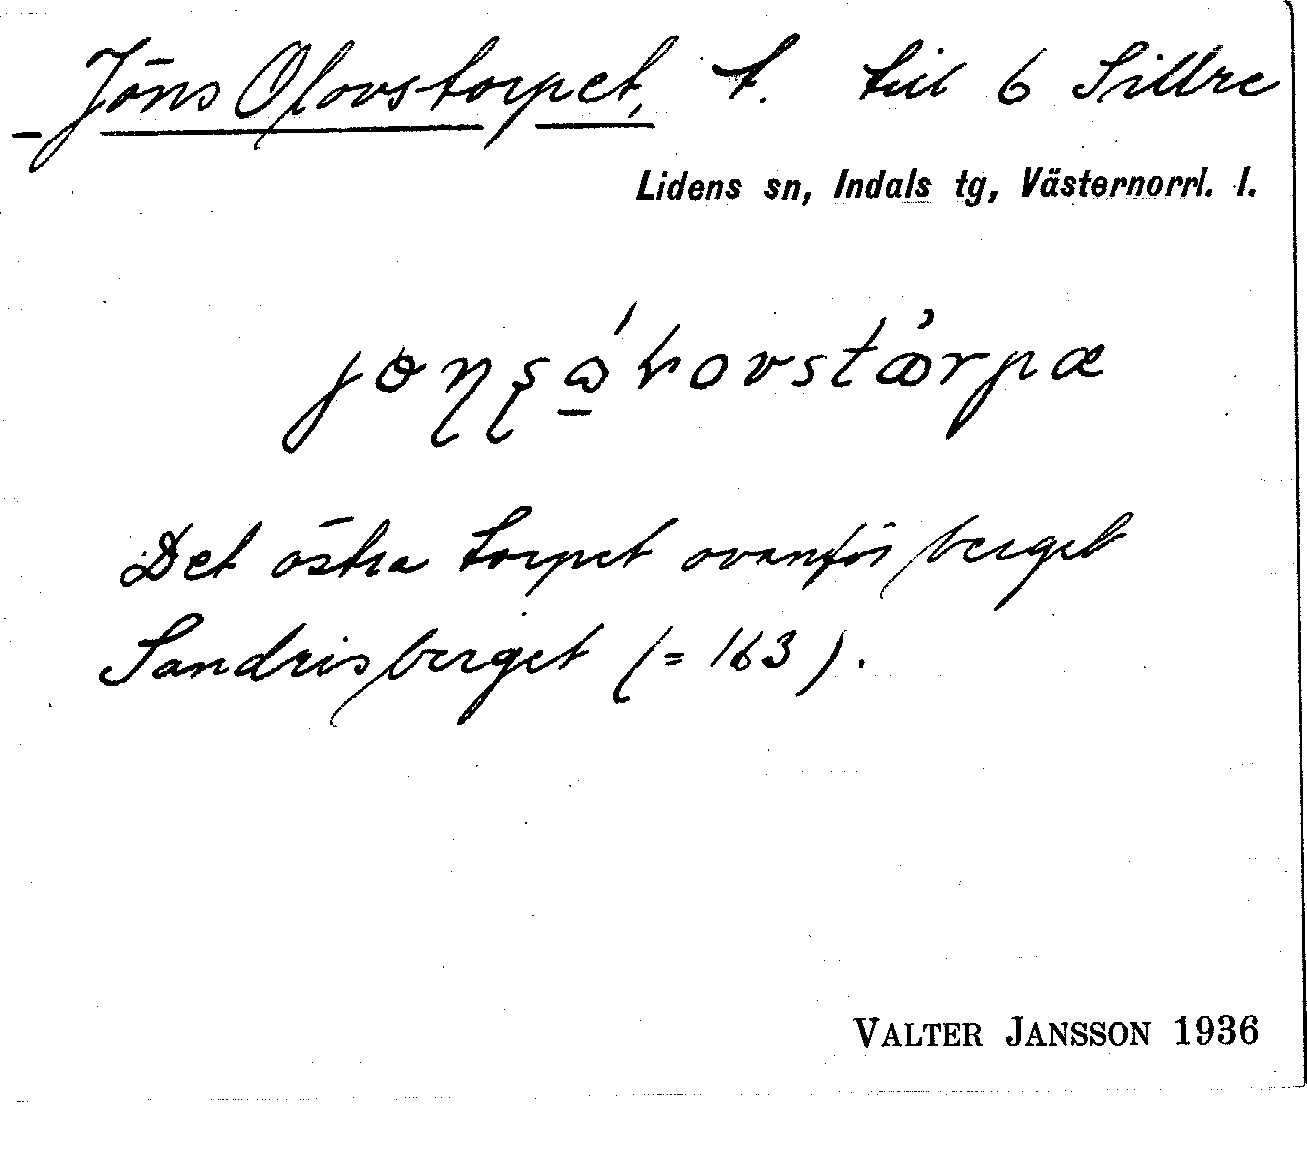 Jöns Olovstorpet, t. till 6 Sillre
Lidens sn, Indals tg, Västernorrl. l.
Det östra torpet ovanför berget
Sandrisberget (= 163).
VALTER JANSSON 1936